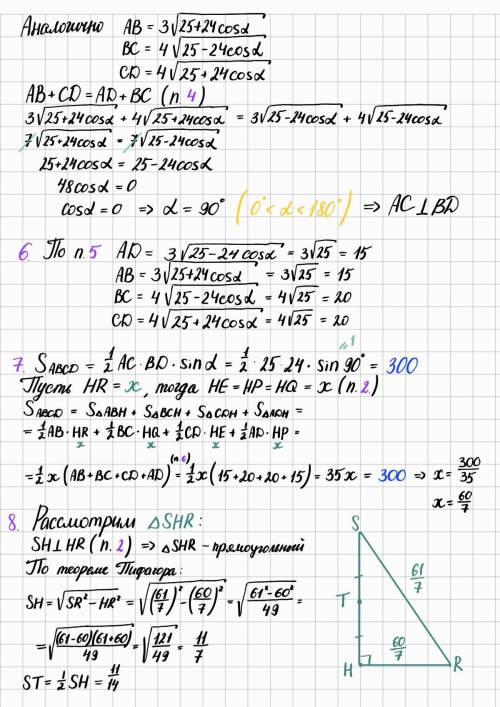 Аналогично AB = 3√(25+24cosα)
BC = 4√(25-24cosα)
CD = 4√(25+24cosα)
AB+CD = AD+BC (п.4)
3√(25+24cosα) + 4√(25+24cosα) = 3√(25-24cosα) + 4√(25-24cosα)
7√(25+24cosα) = 7√(25-24cosα)
25+24cosα = 25-24cosα
48cosα = 0
cosα = 0 ⇒ α = 90° (0° < α < 180°) ⇒ AC⊥BD
6. По п.5 AD = 3√(25-24cosα) = 3√25 = 15
AB = 3√(25+24cosα) = 3√25 = 15
BC = 4√(25-24cosα) = 4√25 = 20
CD = 4√(25+24cosα) = 4√25 = 20
=1
7. S ABCD = 1/2 AC · BD · sinα = 1/2 · 25 · 24 · sin 90° = 300
Пусть HR = x, тогда HE = HP = HQ = x (п.2.)
S ABCD = S△ABH + S△BCH + S△CDH + S△ADH =
= 1/2 AB · HR + 1/2 BC · HQ + 1/2 CD · HE + 1/2 AD · HP =
x x x x
(п.6)
= 1/2 x (AB+BC+CD+AD) = 1/2 x (15+20+20+15) = 35x = 300 ⇒ x = 300/35
x = 60/7
8. Рассмотрим △SHR:
SH⊥HR (п.2) ⇒ △SHR - прямоугольный
По теореме Пифагора:
SH = √(SR² - HR²) = √((61/7)² - (60/7)²) = √((61² - 60²)/49) =
= √((61-60)(61+60)/49) = √(121/49) = 11/7
ST = 1/2 SH = 11/14
S
61/7
T
60/7
H R